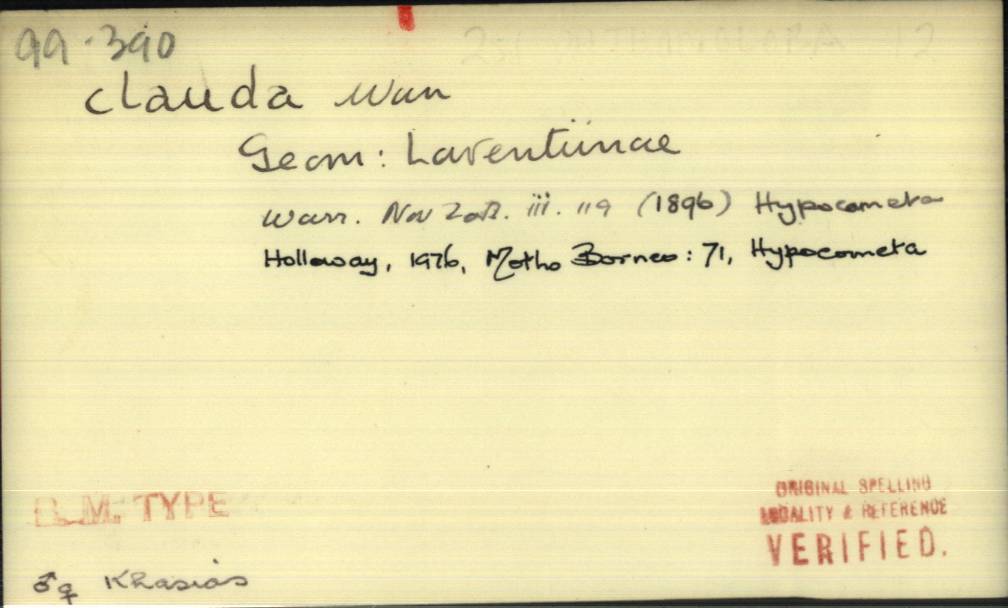 99.390
clauda Warr
Geom: Larentiinae
Warr. Nov Zool. iii. 119 (1896) Hypocometa
Holloway, 1976, Moths Borneo: 71, Hypocometa
B.M. TYPE
ORIGINAL SPELLING
LOCALITY & REFERENCE
VERIFIED.
♂♀ Khasias